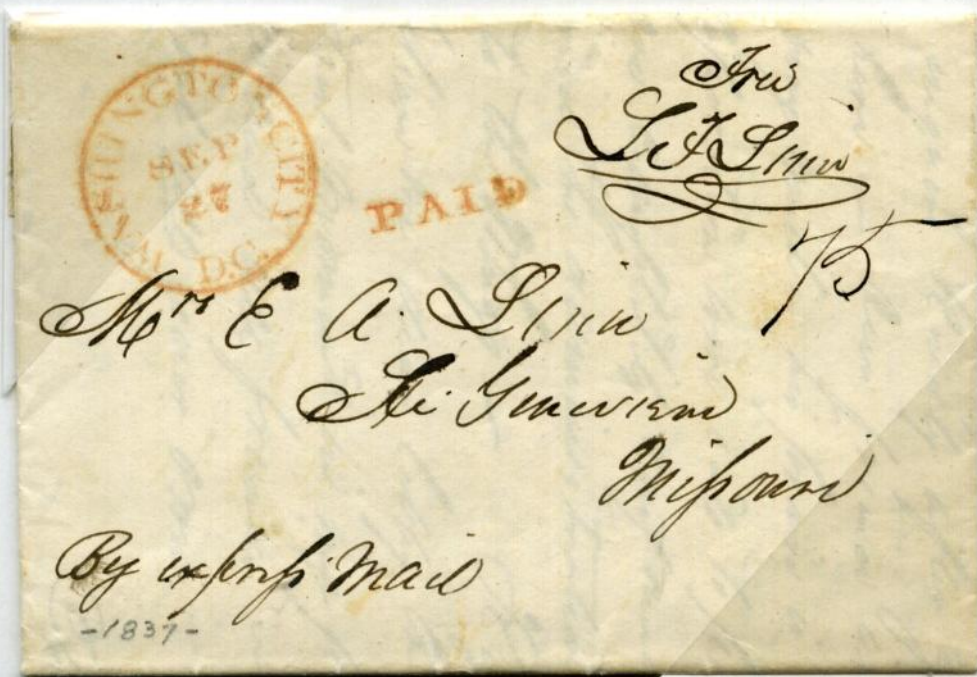 WASHINGTON CITY
SEP
27
D.C.
PAID
Free
L F Linn
75
Mrs E A. Linn
Ste Genevieve
Missouri
By express Mail
-1837-